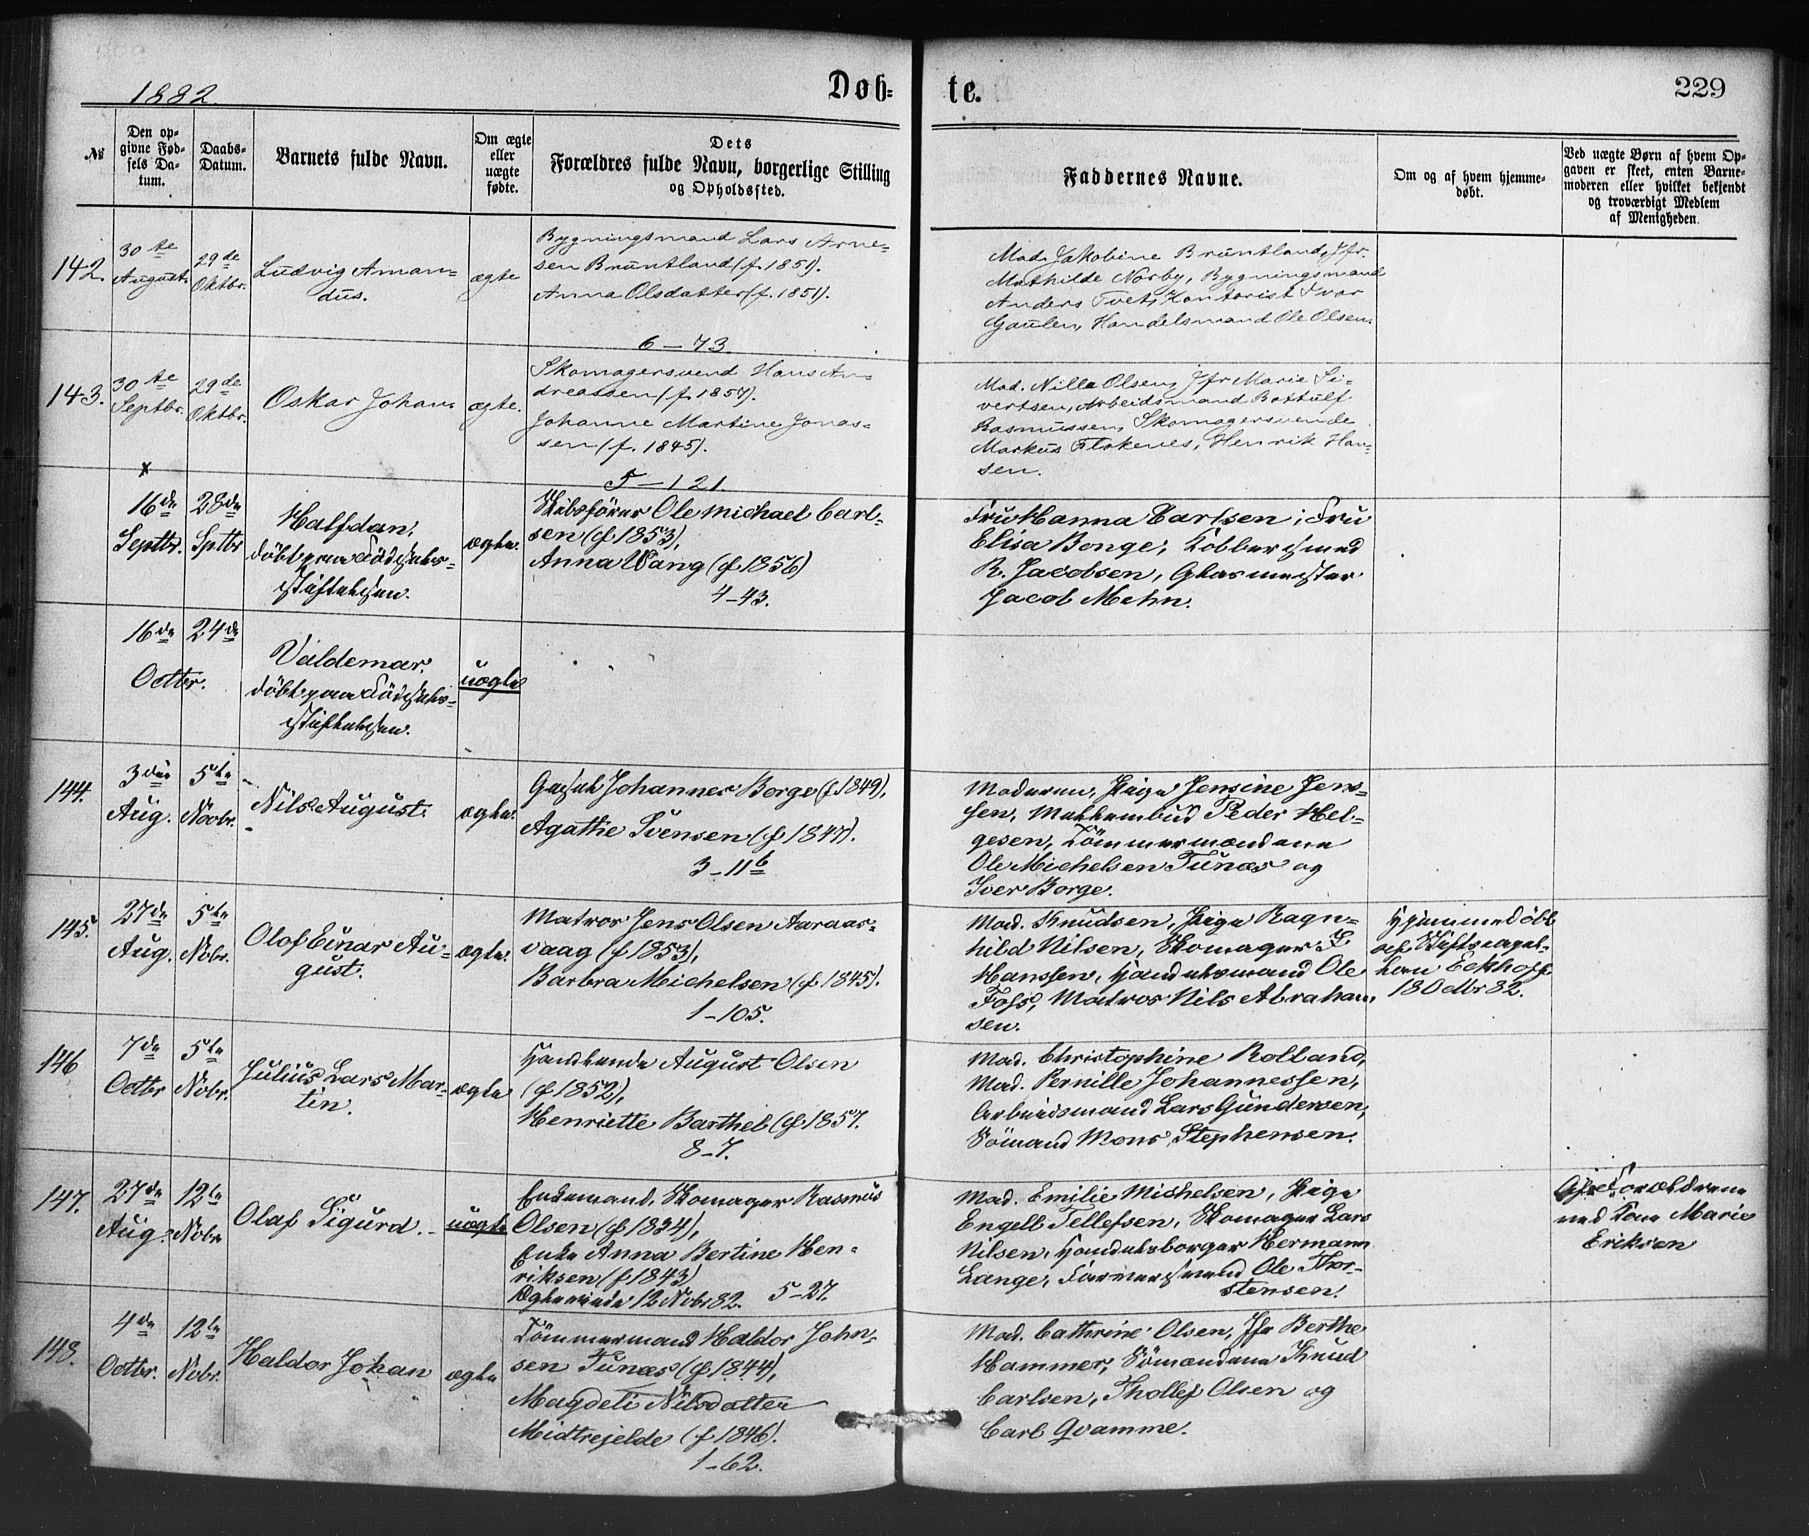 1882.
Døb-
te.
229
№
Den op-
givne Fød-
sels Da-
tum.
Daabs-
Datum.
Barnets fulde Navn.
Om ægte
eller
uægte
fødte.
Dets
Forældres fulde Navn, borgerlige Stilling
og Opholdssted.
Faddernes Navne.
Om og af hvem hjemme-
døbt.
Ved uægte Børn af hvem Op-
gaven er skeet, enten Barne-
moderen eller hvilket bekjendt
og troværdigt Medlem
af Menigheden.
142.
30te
August.
29de
Oktbr.
Ludvig Aman-
dus.
ægte
Bygningsmand Lars Arne-
sen Bruntland (f. 1851).
Anna Olsdatter (f. 1851).
6-73.
Mad. Jakobine Bruntland, Jfr.
Mathilde Norby, Bygningsmand
Anders Tvet, Kontorist Ivar
Gaulen, Handelsmand Ole Olsen.
143.
30te
Septbr.
29de
Oktbr.
Oskar Johan.
ægte.
Skomagersvend Hans An-
dreassen (f. 1857).
Johanne Martine Jonas-
sen (f. 1845).
5-121.
Mad. Nille Olsen, Jfr Marie Si-
vertsen, Arbeidsmand Bottulf
Rasmussen, Skomagersvende
Markus Flokenes, Henrik Han-
sen.
x
16de
Septbr.
28de
Sptbr
Halfdan,
døbt paa Fødsels-
stiftelsen.
ægte.
Skibsfører Ole Michael Carl-
sen (f 1853),
Anna Wang (f 1856)
4-43.
Fru Hanna Carlsen, Fru
Elisa Bonge, Kobbersmed
R. Jacobsen, Glasmester
Jacob Mehn.
16de 24de
Octbr.
Valdemar.
døbt paa Fødsels-
stiftelsen.
uægte
144.
3die
Aug.
5te
Novbr.
Nils August.
ægte.
Johannes Borge (f 1849),
Agathe Svensen (f 1847).
3-11b
Moderen, Pige Jensine Jens-
sen, Peder Hel-
gesen, Tømmermændene
Ole Michelsen Tunæs og
Iver Borge.
145.
27de
Aug.
5te
Nobr.
Olof Einar Au-
gust.
ægte.
Matros Jens Olsen Aaraas-
vaag (f 1853),
Barbra Michelsen (f 1845).
1-105.
Mad. Knudsen, Pige Ragn-
hild Nilsen, Skomager L.
Hanssen, Handelsmand Ole
Foss, Matros Nils Abraham-
sen.
Hjemmedøbt
af Stiftscapel-
lan Eckhoff
18 Octbr 82.
146
7de
Octbr
5te
Nobr.
Julius Lars Mar-
tin.
ægte
August Olsen
(f 1852),
Henriette Barthel (f 1857.
8-7.
Mad. Christophine Rolland,
Mad. Pernille Johannessen,
Arbeidsmand Lars Gundersen,
Sømand Mons Stephensen.
147.
27de
Aug.
12te
Nobr
Olaf Sigurd.
uægte
Enkemand, Skomager Rasmus
Olsen (f 1834),
Enke Anna Bertine Hen-
riksen (f 1843)
Ægteviede 12 Nobr 82. 5-27.
Mad. Emilie Mishelsen, Pige
Engell Tellefsen, Skomager Lars
Nilsen, Handelsborger Hermann
Lange, Farversvend Ole Thor-
stensen.
Af Forældrene
ved Marie
Eriksen
148.
4de
Octbr.
12te
Nobr.
Haldor Johan
ægte
Tømmermand Haldor John-
sen Tunæs (f 1844),
Magdeli Nilsdatter
Midtrejelde (f 1846).
1-62.
Mad. Cathrine Olsen, Jfr Berthe
Hammer, Sømændene Knud
Carlsen, Thollef Olsen og
Carl Qvamme.